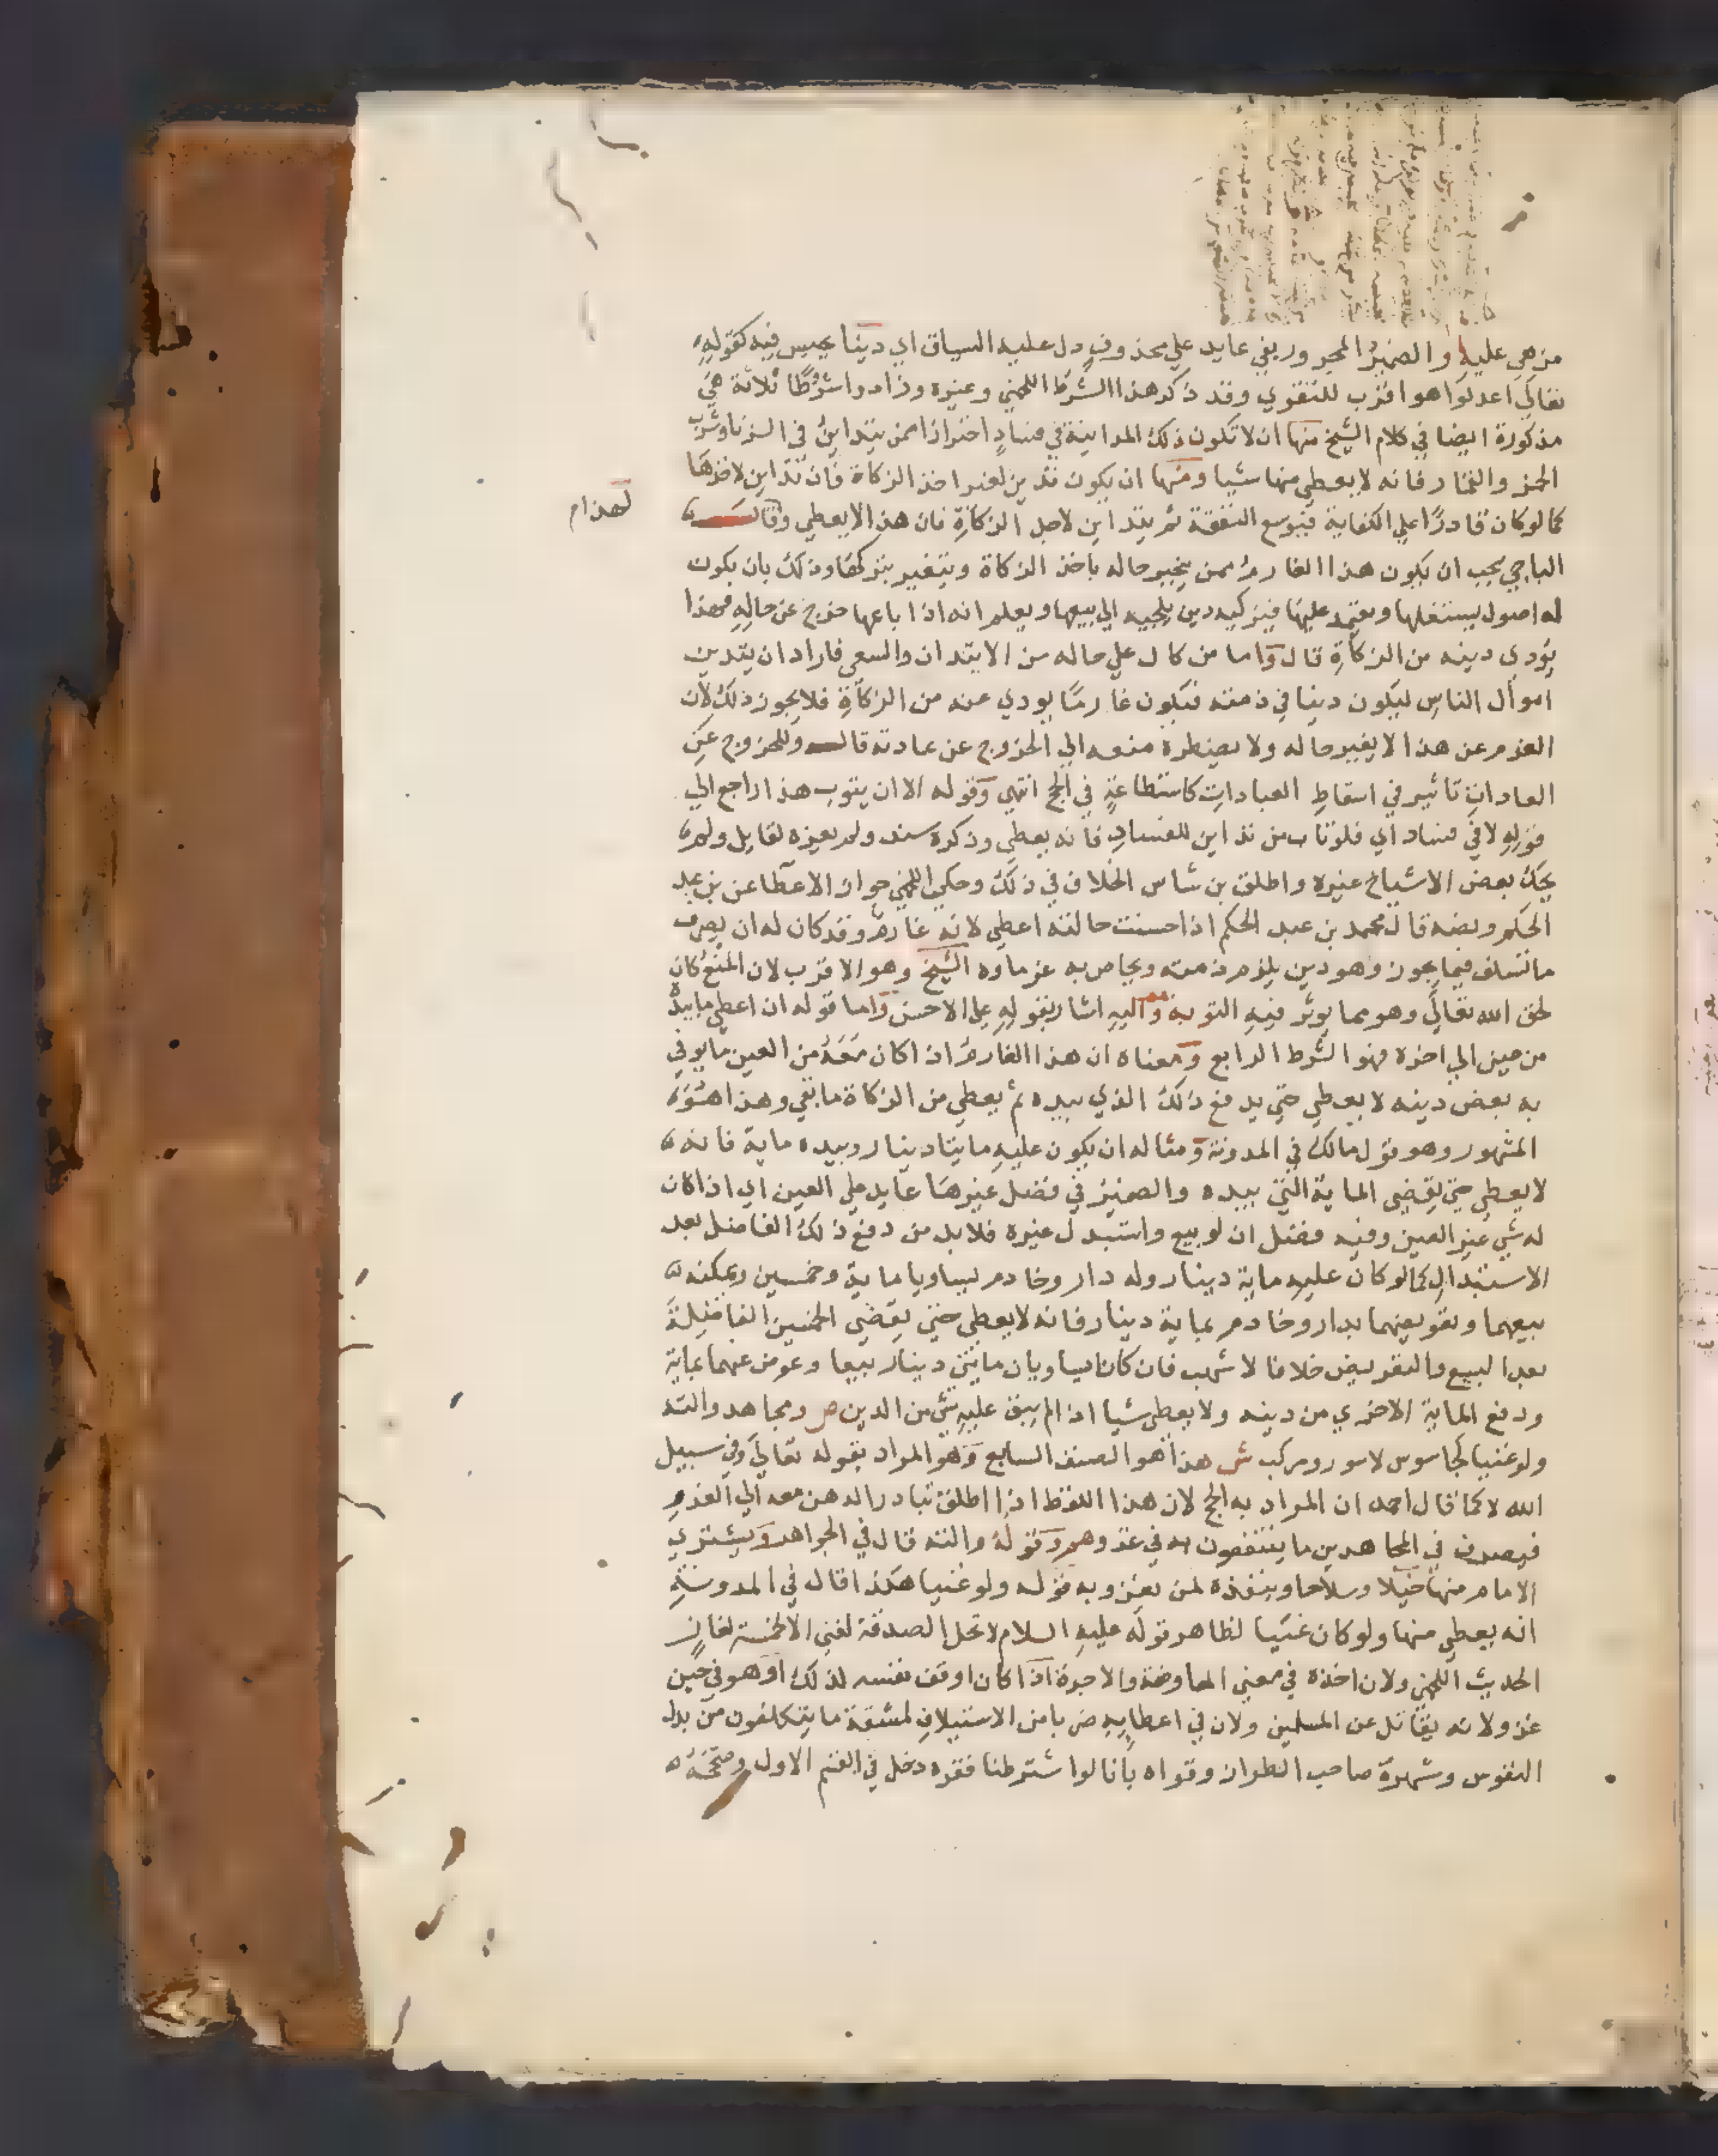 من هي عليه والضمير المجرور بفي عايد علي محذوف دل عليه السياق اي دينا يحبس فيه كقوله
تعالي اعدلوا هو اقرب للتقوي وقد ذكر هذا الشرط اللخمي وغيره وزادوا شروطا ثلاثة هي
مذكورة ايضا في كلام الشيخ منها ان لا تكون ذلك المداينة في فساد احترازا ممن يتداين في الزنا وشرب
الخمر والقمار فانه لا يعطي منها شيا ومنها ان يكون تدين لغير اخذ الزكاة فان تداين لاخذها
كما لو كان قادرا علي الكفاية فيوسع النفقة ثم يتداين لاجل الزكاة فان هذا لا يعطي وقال
لهذا م
الباجي يجب ان يكون هذا الغارم ممن يجبر حاله باخذ الزكاة ويتغير بتركها وذلك بان يكون
له اصول يستغلها ويعتمد عليها فيركبه دين يلجيه الي بيعها ويعلم انه اذا باعها خرج عن حاله فهذا
يودي دينه من الزكاة قال واما من كان علي حاله من الابتدان والسعي فاراد ان يتدين
اموال الناس ليكون دينا في ذمته فيكون غارما يودي عنه من الزكاة فلا يجوز ذلك لان
الغرم عن هذا لا يغير حاله ولا يضطره منعه الي الخروج عن عادته قال وللخروج عن
العادات تاثير في اسقاط العبادات كاستطاعة في الحج انتهي وقوله الا ان يتوب هذا راجع الي
قوله لا في فساد اي فلو تاب من تداين للفساد فانه يعطي وذكره سند ولم يعزه لقايل ولم
يحك بعض الاشياخ غيره واطلق بن شاس الخلاف في ذلك وحكي اللخمي جواز الاعطا عن بن عبد
الحكم ونصه قال محمد بن عبد الحكم اذا حسنت حالته اعطي لانه غارم وقد كان له ان يصرف
ما تسلف فيما يجوز وهو دين يلزم ذمته ويحاص به غرماوه الشيخ وهو الاقرب لان المنع كان
لحق الله تعالي وهو مما يوثر فيه التوبة واليه اشار بقوله علي الاحسن واما قوله ان اعطي ما بيده
من عين الي اخره فهو الشرط الرابع ومعناه ان هذا الغارم اذا كان معه من العين ما يوفي
به بعض دينه لا يعطي حتي يدفع ذلك الذي بيده ثم يعطي من الزكاة ما بقي وهذا هو
المشهور وهو قول مالك في المدونة ومثاله ان يكون عليه مايتا دينار وبيده ماية فانه
لا يعطي حتي يقضي الماية التي بيده والضمير في فضل غيرها عايد علي العين اي اذا كان
له شي غير العين وفيه فضل ان لو بيع واستبدل غيره فلا بد من دفع ذلك الفاضل بعد
الاستبدال كما لو كان عليه ماية دينار وله دار وخادم يساويا ماية وخمسين ويمكنه
بيعهما وتعويضهما بدار وخادم بماية دينار فانه لا يعطي حتي يقضي الخمسين الفاضلة
بعد البيع والتعويض خلافا لاشهب فان كانا يساويان مايتي دينار بيعا وعوض عنهما بماية
ودفع الماية الاخري من دينه ولا يعطي شيا اذا لم يبق عليه شي من الدين ص ومجاهد والته
ولو غنيا كجاسوس لا سور ومركب ش هذا هو الصنف السابع وهو المراد بقوله تعالي وفي سبيل
الله لا كما قال احمد ان المراد به الحج لان هذا اللفظ اذا اطلق تبادر الدهن معه الي الغزو
فيصرف في المجاهدين ما ينتفعون به في غزوهم وقوله والته قال في الجواهر ويشتري
الامام منها خيلا وسلاحا وينفذه لمن يغزو به قوله ولو غنيا هكذا قال في المدونة
انه يعطي منها ولو كان غنيا لظاهر قوله عليه السلام لا تحل الصدقة لغني الا لخمسة لغاز
الحديث اللخمي ولان اخذه في معني المعاوضة والاجرة اذا كان اوقف نفسه لذلك او هو في حين
غزو ولانه يقاتل عن المسلمين ولان في اعطايه ضربا من الاستيلاف لمشقة ما يتكلفون من بذل
النفوس وشهره صاحب الطراز وقواه بانا لو اشترطنا فقره دخل في القسم الاول وصححه